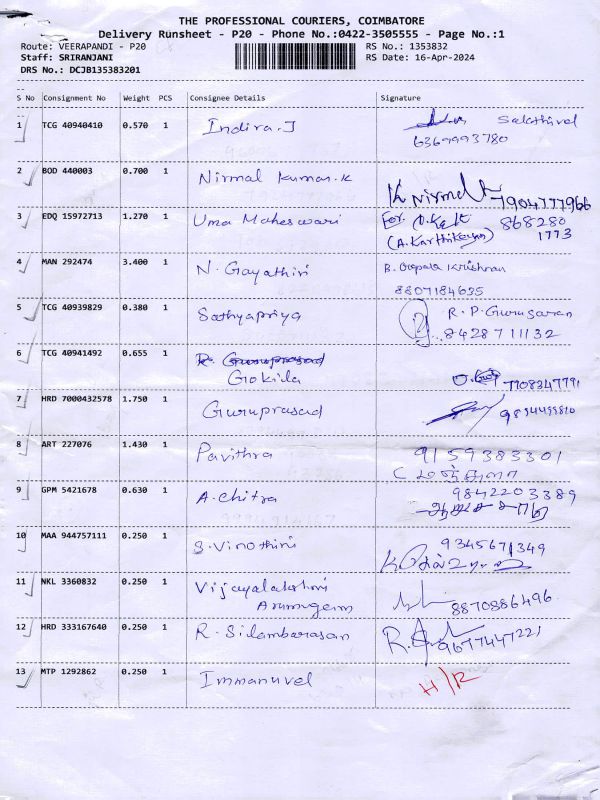 THE PROFESSIONAL COURIERS, COIMBATORE
Delivery Runsheet - P20 - Phone No.:0422-3505555 - Page No.:1
Route: VEERAPANDI - P20 RS No.: 1353832
Staff: SRIRANJANI RS Date: 16-Apr-2024
DRS No.: DCJB135383201
S No Consignment No Weight PCS Consignee Details Signature
1 TCG 40940410 0.570 1 Indira.J Sakthivel
6369993780
2 BOD 440003 0.700 1 Nirmal Kumar.K
K Nirmal 7904777966
3 EDQ 15972713 1.270 1 Uma Maheswari For. 868280
(A.Karthikeyan) 1773
4 MAN 292474 3.400 1 N. Gayathiri B. Gopala Krishnan
8807184635
5 TCG 40939829 0.380 1 Sathyapriya R.P.Gurusaran
8428711132
6 TCG 40941492 0.655 1 R. Guruprasad
Gokila 7708347791
7 HRD 7000432578 1.750 1 Guruprasad 9894499810
8 ART 227076 1.430 1 Pavithra 9159383301
C மஞ்சுளா
9 GPM 5421678 0.630 1 A.chitra 9842203389
10 MAA 944757111 0.250 1 S.Vinothini 9345671349
11 NKL 3360832 0.250 1 Vijayalakshmi
Arumugam 8870886496
12 HRD 333167640 0.250 1 R. Silambarasan 9677447221
13 MTP 1292862 0.250 1 Immanuvel H/R